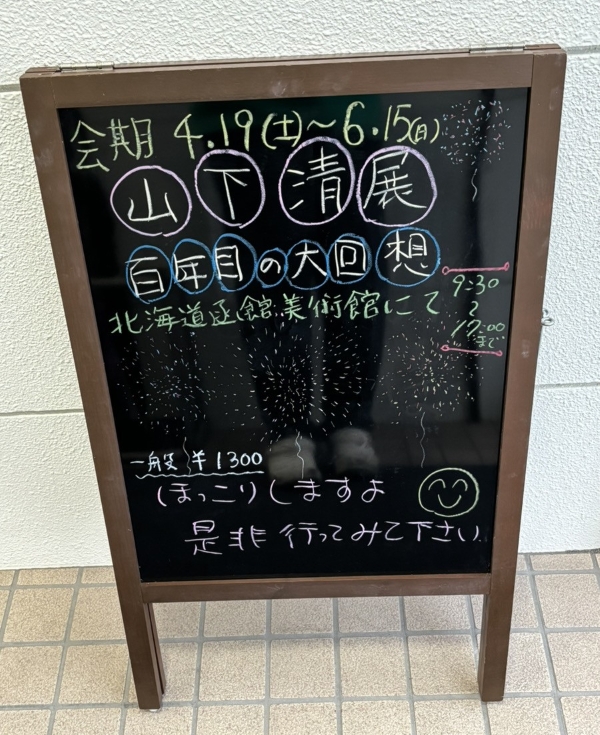 会期 4.19(土)~6.15(日)
山下清展
百年目の大回想
北海道函館美術館にて
9:30
〜
17:00
まで
一般 ¥1300
ほっこりしますよ
是非行ってみて下さい